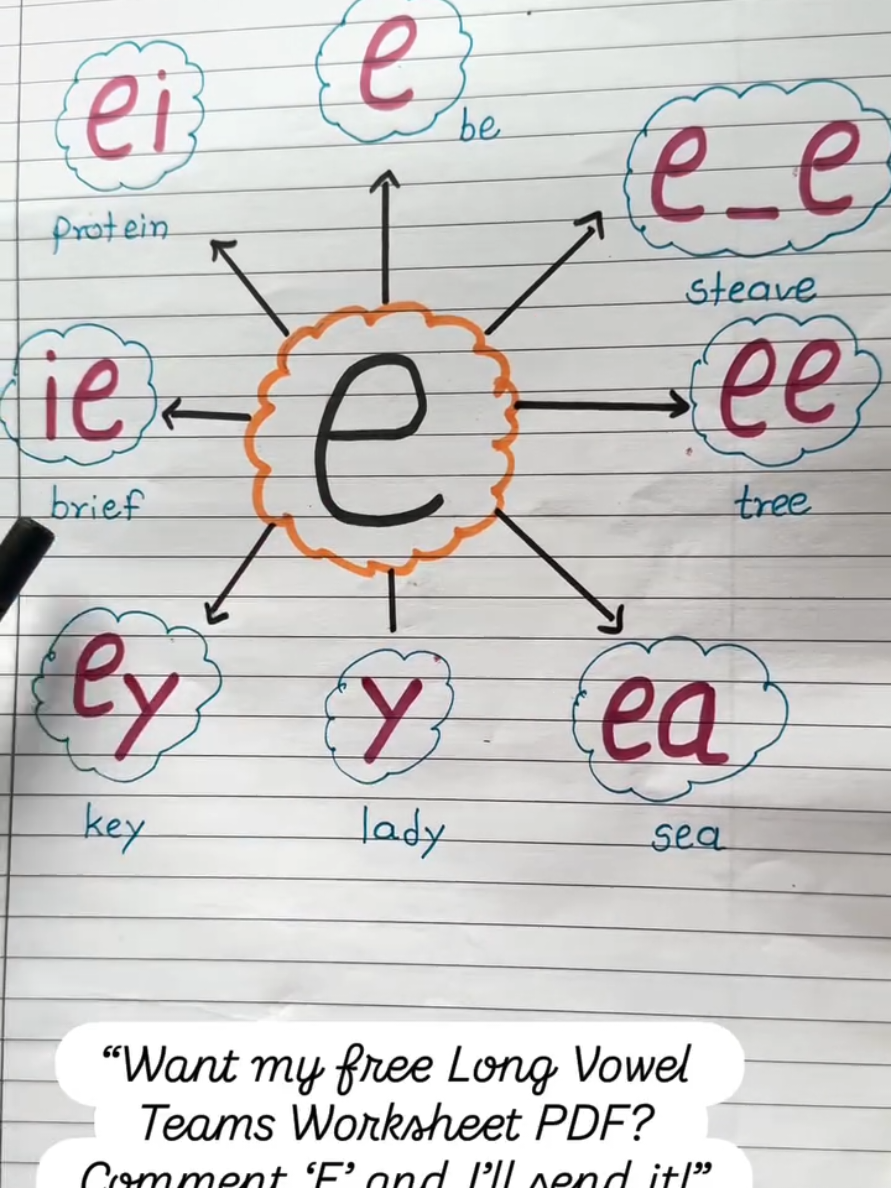 e
be
ei
protein
e_e
steave
ie
brief
e
ee
tree
ey
key
y
lady
ea
sea
“Want my free Long Vowel
Teams Worksheet PDF?
Comment ‘E’ and I’ll send it!”